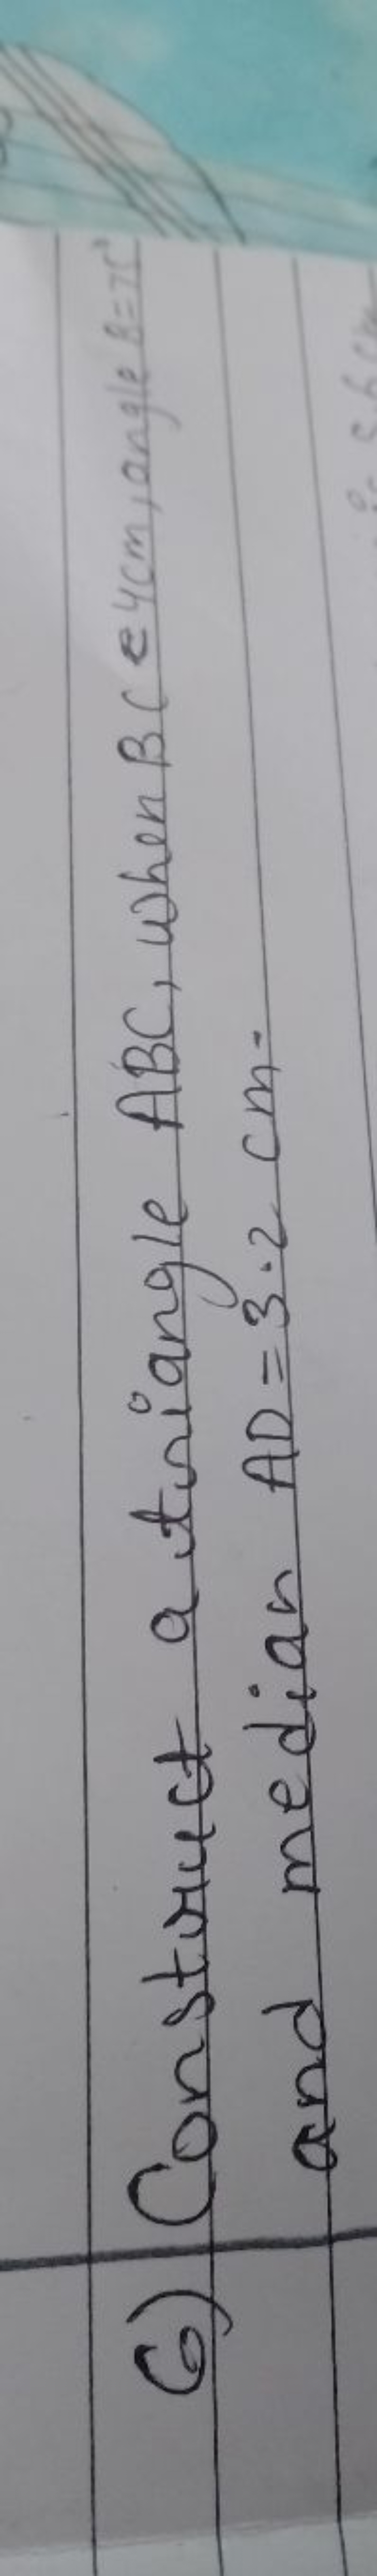 6) Construct a triangle ABC, when BC = 4cm, angle B = 75°
and median AD = 3.2 cm.